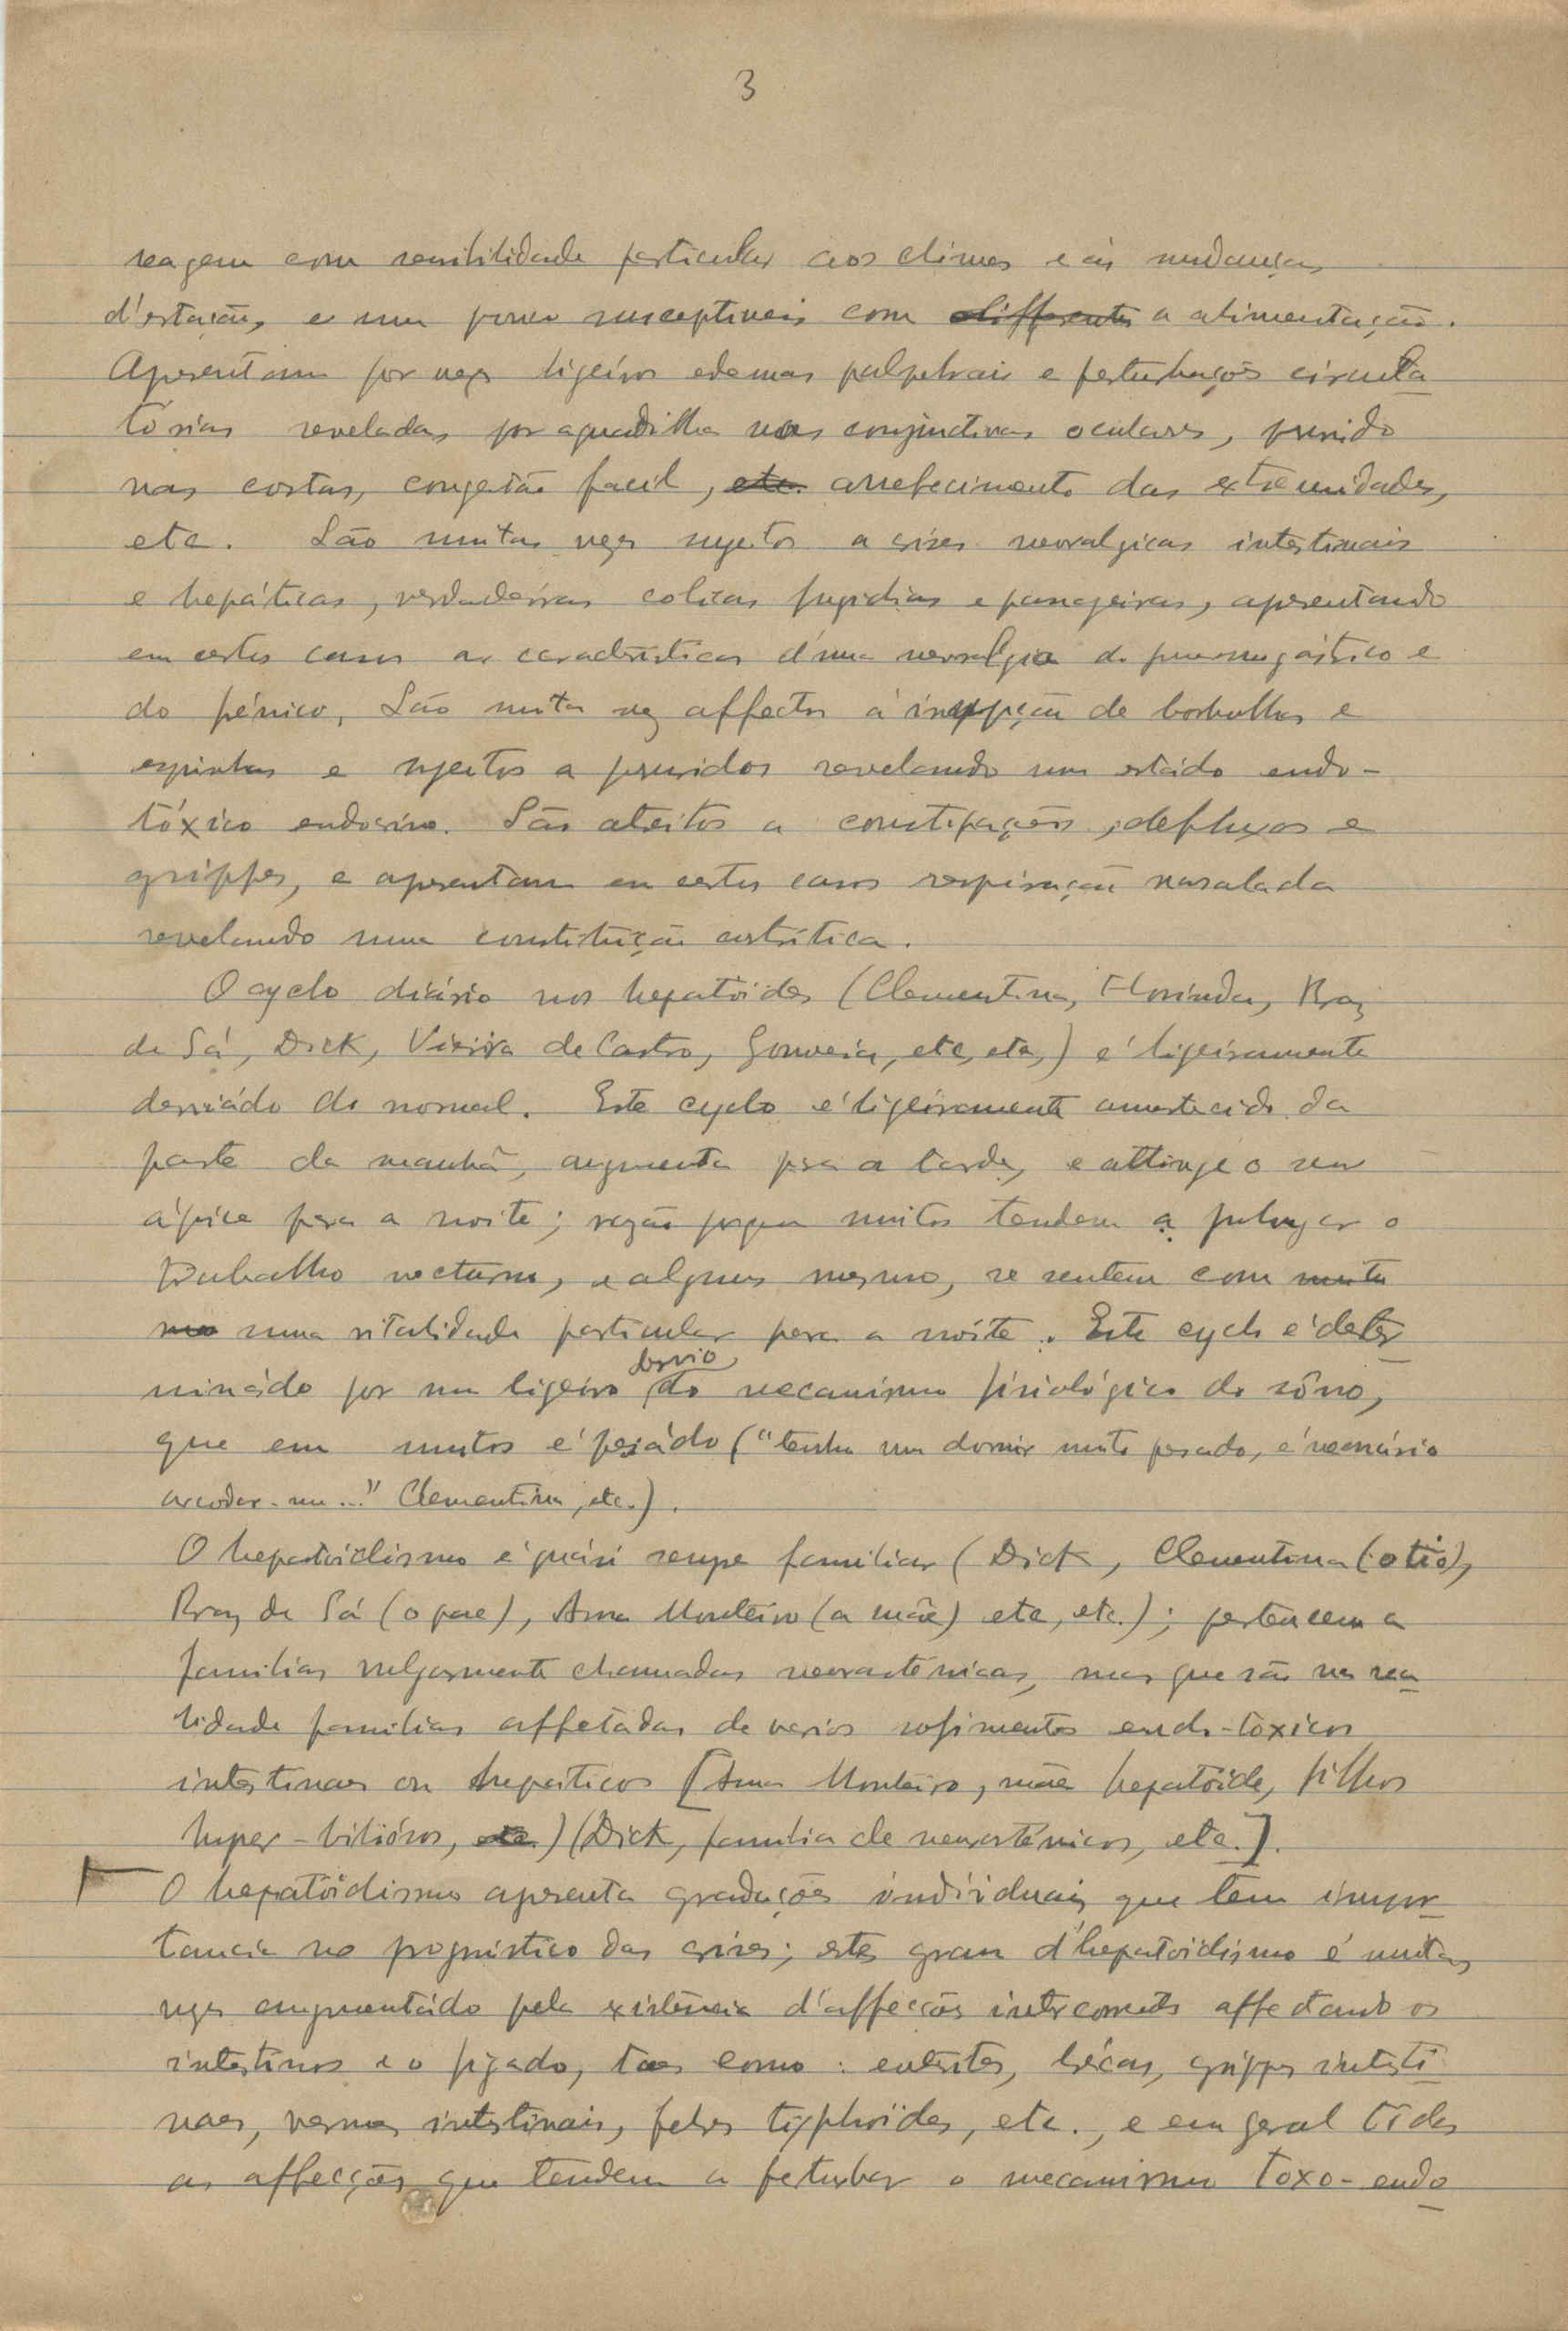 3
reagem com sensibilidade particular aos climas e ás mudanças
d'estação, e um pouco susceptiveis com differentes a alimentação.
Apresentam por vezes ligeiros edemas palpebrais e perturbações circula
tórias reveladas por aguadilha nas conjunctivas oculares, prurido
nas costas, congestão facil, etc. arrefecimento das extremidades,
etc. São muitas vezes sujeitos a crises nevralgicas intestinais
e hepáticas, verdadeiras colicas fugidias e passageiras, apresentando
em certos casos as caracteristicas d'uma nevralgia do pneumogástrico e
do frénico, São muita vez affectos á de borbulhas e
espinhas e sujeitos a pruridos revelando um estádo endo-
tóxico endocrino. São atreitos a constipações, defluxos e
grippes, e apresentam em certos casos respiração nasalada
revelando uma constituição artritica.
O cyclo diário nos hepatóides (Clementina, Florinda, Braz
de Sá, Dick, Vieira de Castro, Gouveia, etc, etc,) é ligeiramente
desviádo do normal. Este cyclo é ligeiramente amortecido da
parte da manhã, augmenta pra a tarde, e attinge o seu
ápice para a noite; razão porque muitos tendem a prolongar o
trabalho nocturno, e alguns mesmo, se sentem com muita
uma vitalidade particular para a noite. Este cyclo é deter
minádo por um ligeiro desvio do mecanismo fisiológico do sôno,
que em muitos é pesádo ("tenho um dormir muito pesado, é necessário
accodar-me..." Clementina, etc.).
O hepatoidismo é quási sempre familiar (Dick, Clementina (o tio),
Braz de Sá (o pae), Ana Monteiro (a mãe) etc, etc.); pertencem a
familias vulgarmente chamadas nevrasténicas, mas que são na rea
lidade familias affetadas de varios sofrimentos endo-tóxicos
intestinaes ou hepaticos [Ana Monteiro, mãe hepatóide, filhos
hyper-biliósos, etc.) (Dick, familia de nevrasténicos, etc.].
O hepatóidismo apresenta graduações individuais que tem impor
tancia no prognóstico das crises; este grau d'hepatoidismo é muitas
vezes augmentádo pela existência d'affecções intercorrentes affectando os
intestinos e o figado, taes como: enterites, grippes intesti
naes, vermes intestinais, febres typhoides, etc., e em geral tôdas
as affecções que tendem a perturbar o mecanismo toxo-endo